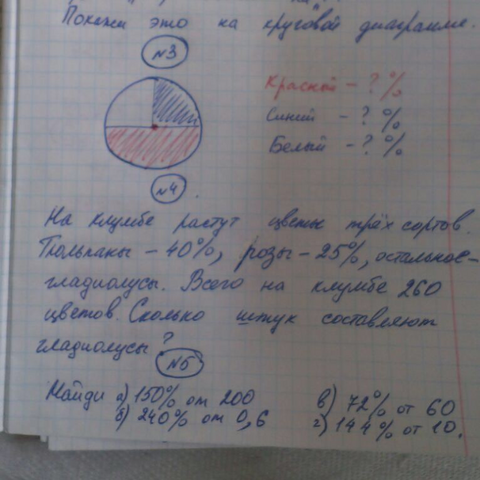 Покажи это на круговой диаграмме.
№3
Красный - ? %
Синий - ? %
Белый - ? %
№4
На клумбе растут цветы трёх сортов.
Тюльпаны - 40%, розы - 25%, остальное -
гладиолусы. Всего на клумбе 260
цветов. Сколько штук составляют
гладиолусы?
№5
Найди а) 150% от 200
б) 240% от 0,6
в) 72% от 60
г) 144% от 10.